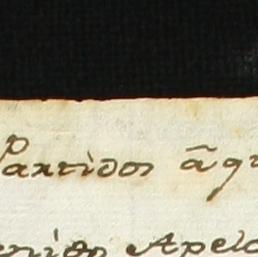 Partidos āqu
Apelo